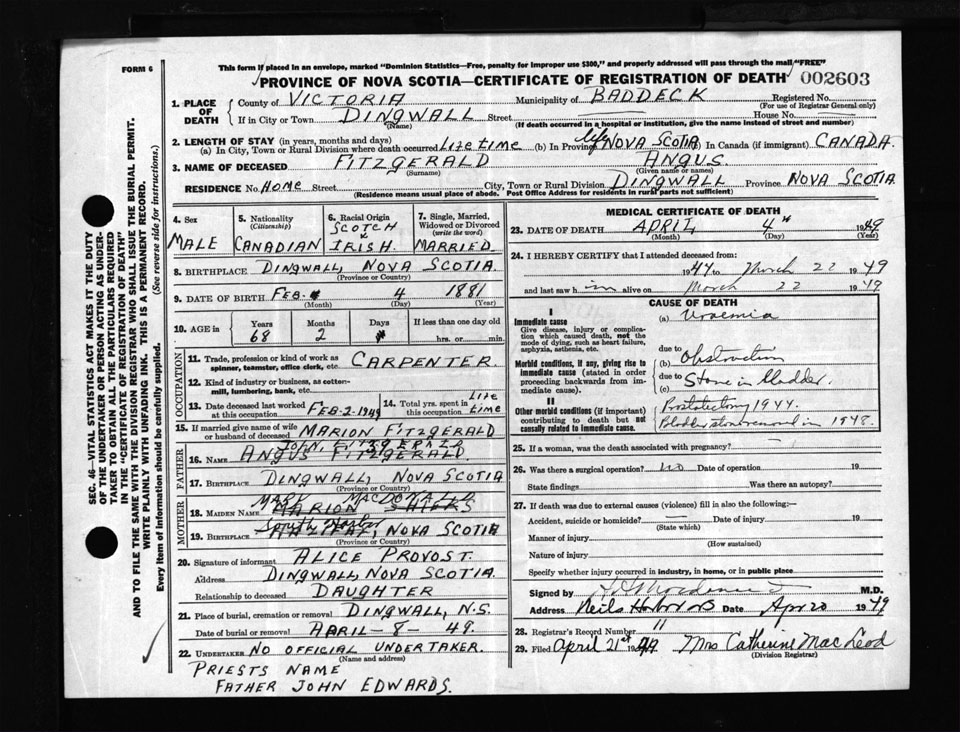 FORM 6
This form if placed in an envelope, marked "Dominion Statistics—Free, penalty for improper use $300," and properly addressed will pass through the mail "FREE"
PROVINCE OF NOVA SCOTIA—CERTIFICATE OF REGISTRATION OF DEATH
002603
SEC. 46—VITAL STATISTICS ACT MAKES IT THE DUTY
OF THE UNDERTAKER OR PERSON ACTING AS UNDER-
TAKER TO OBTAIN ALL THE PARTICULARS REQUIRED
IN THE "CERTIFICATE OF REGISTRATION OF DEATH"
AND TO FILE THE SAME WITH THE DIVISION REGISTRAR WHO SHALL ISSUE THE BURIAL PERMIT.
WRITE PLAINLY WITH UNFADING INK. THIS IS A PERMANENT RECORD.
Every item of information should be carefully supplied. (See reverse side for instructions.)
1. PLACE OF DEATH County of VICTORIA Municipality of BADDECK Registered No.
(For use of Registrar General only)
If in City or Town DINGWALL Street House No.
(Name) (If death occurred in a hospital or institution, give the name instead of street and number)
2. LENGTH OF STAY (in years, months and days)
(a) In City, Town or Rural Division where death occurred Life time (b) In Province life NOVA SCOTIA In Canada (if immigrant) CANADA.
3. NAME OF DECEASED FITZGERALD ANGUS.
(Surname) (Given name or names)
RESIDENCE No. Home Street City, Town or Rural Division DINGWALL Province NOVA SCOTIA.
(Residence means usual place of abode. Post Office Address for residents in rural parts not sufficient)
4. Sex
MALE
5. Nationality
(Citizenship)
CANADIAN
6. Racial Origin
SCOTCH
IRISH.
7. Single, Married,
Widowed or Divorced
(write the word)
MARRIED
8. BIRTHPLACE DINGWALL, NOVA SCOTIA.
(Province or Country)
9. DATE OF BIRTH FEB. 4 1881
(Month) (Day) (Year)
10. AGE in Years Months Days If less than one day old
68 2 hrs. or min.
OCCUPATION
11. Trade, profession or kind of work as
spinner, teamster, office clerk, etc. CARPENTER.
12. Kind of industry or business, as cotton-
mill, lumbering, bank, etc.
13. Date deceased last worked
at this occupation FEB-2-1949
14. Total yrs. spent in
this occupation Life time
15. If married give name of wife
or husband of deceased MARION FITZGERALD
FATHER
JOHN FITZGERALD
16. Name ANGUS FITZGERALD.
17. Birthplace DINGWALL, NOVA SCOTIA
(Province or Country)
MOTHER
MARY MACDONALD
18. Maiden Name MARION
South Harbor
19. Birthplace HALIFAX, NOVA SCOTIA
(Province or Country)
20. Signature of informant ALICE PROVOST.
Address DINGWALL, NOVA SCOTIA.
Relationship to deceased DAUGHTER
21. Place of burial, cremation or removal DINGWALL, N.S.
Date of burial or removal APRIL-8-49.
22. UNDERTAKER NO OFFICIAL UNDERTAKER.
(Name and address)
PRIESTS NAME
FATHER JOHN EDWARDS.
MEDICAL CERTIFICATE OF DEATH
23. DATE OF DEATH APRIL 4th 1949
(Month) (Day) (Year)
24. I HEREBY CERTIFY that I attended deceased from:
1947 to March 22 1949
and last saw him alive on March 22 1949
CAUSE OF DEATH
I
Immediate cause
Give disease, injury or complica-
tion which caused death, not the
mode of dying, such as heart failure,
asphyxia, asthenia, etc.
(a) Uraemia
due to
Morbid conditions, if any, giving rise to
immediate cause (stated in order
proceeding backwards from im-
mediate cause).
(b) Obstruction
due to
(c) Stone in bladder.
II
Other morbid conditions (if important)
contributing to death but not
causally related to immediate cause.
Prostatectomy 1944.
Bladder stone removed in 1948.
25. If a woman, was the death associated with pregnancy?
26. Was there a surgical operation? no Date of operation 19
State findings Was there an autopsy?
27. If death was due to external causes (violence) fill in also the following:—
Accident, suicide or homicide? Date of injury 19
(State which)
Manner of injury
(How sustained)
Nature of injury
Specify whether injury occurred in industry, in home, or in public place
Signed by M.D.
Address Neils Harbor NS Date Apr 20 1949
28. Registrar's Record Number 11
29. Filed April 21st 1949 Mrs Catherine Mac Leod
(Division Registrar)